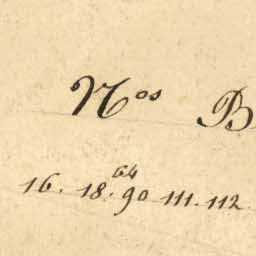 Nos B
64
16. 18. 90 111. 112